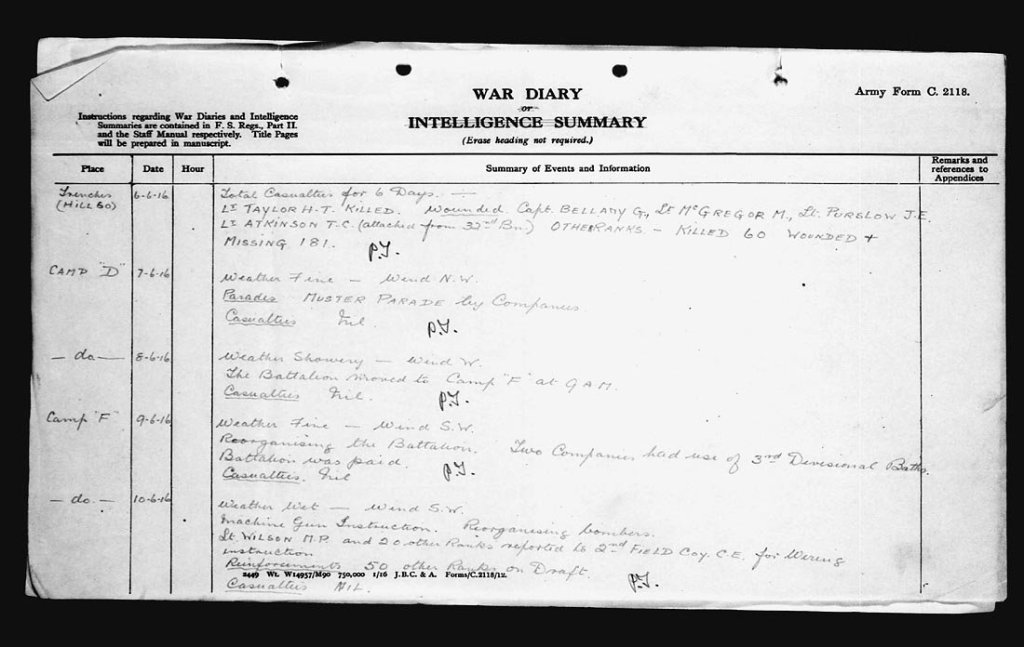 WAR DIARY
or
INTELLIGENCE SUMMARY
(Erase heading not required.)
Army Form C. 2118.
Instructions regarding War Diaries and Intelligence
Summaries are contained in F. S. Regs., Part II.
and the Staff Manual respectively. Title Pages
will be prepared in manuscript.
Place Date Hour Summary of Events and Information Remarks and references to Appendices
Trenches (HILL 60) 6-6-16 Total Casualties for 6 Days. —
LT TAYLOR H-T. KILLED. Wounded. Capt. BELLAMY G., Lt McGREGOR M., Lt. PURSLOW J.E.
LT ATKINSON T.C. (attached from 32nd Bn.) OTHER RANKS — KILLED 60 WOUNDED +
MISSING 181. P.T.
CAMP "D" 7-6-16 Weather Fine — Wind N.W.
Parades MUSTER PARADE by Companies
Casualties Nil. P.T.
— do — 8-6-16 Weather Showery — Wind W.
The Battalion moved to Camp "F" at 9 AM.
Casualties Nil. P.T.
Camp "F" 9-6-16 Weather Fine — Wind S.W.
Reorganising the Battalion. Two Companies had use of 3rd Divisional Baths.
Battalion was paid. P.T.
Casualties. Nil
— do. — 10-6-16 Weather Wet — Wind S.W.
Machine Gun Instruction. Reorganising bombers.
Lt WILSON M.P. and 20 other Ranks reported to 2nd FIELD Coy. C.E. for Wiring
instruction
Reinforcements 50 other Ranks on Draft.
2449 Wt. W14957/M90 750,000 1/16 J.B.C. & A. Forms/C.2118/12.
Casualties NIL. P.T.